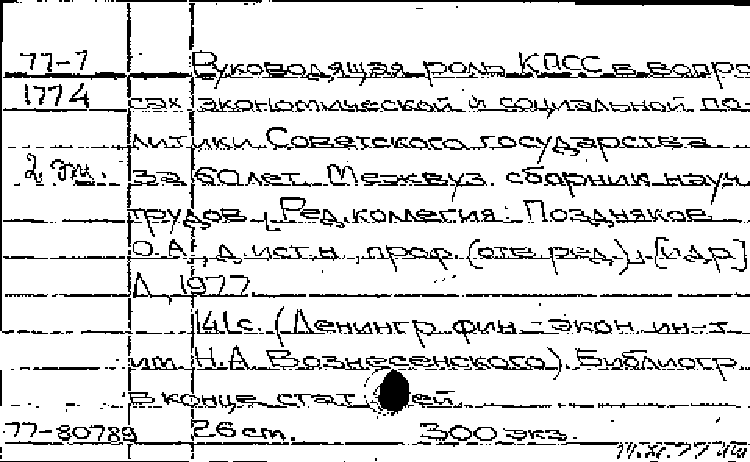 77-7 Руководящая роль КПСС в вопро
1774 сах экономической и социальной по
литики Советского государства
2 эк. за 60 лет. Межвуз. сборник науч.
трудов. Ред. коллегия: Поздняков
О.А., д. ист. н., проф. (отв. ред.), [и др.]
Л., 1977.
141с. (Ленингр. фин.-экон. ин-т
им. Н.А. Вознесенского). Библиогр.
в конце статей
77-80789 26 cm. 300 экз.